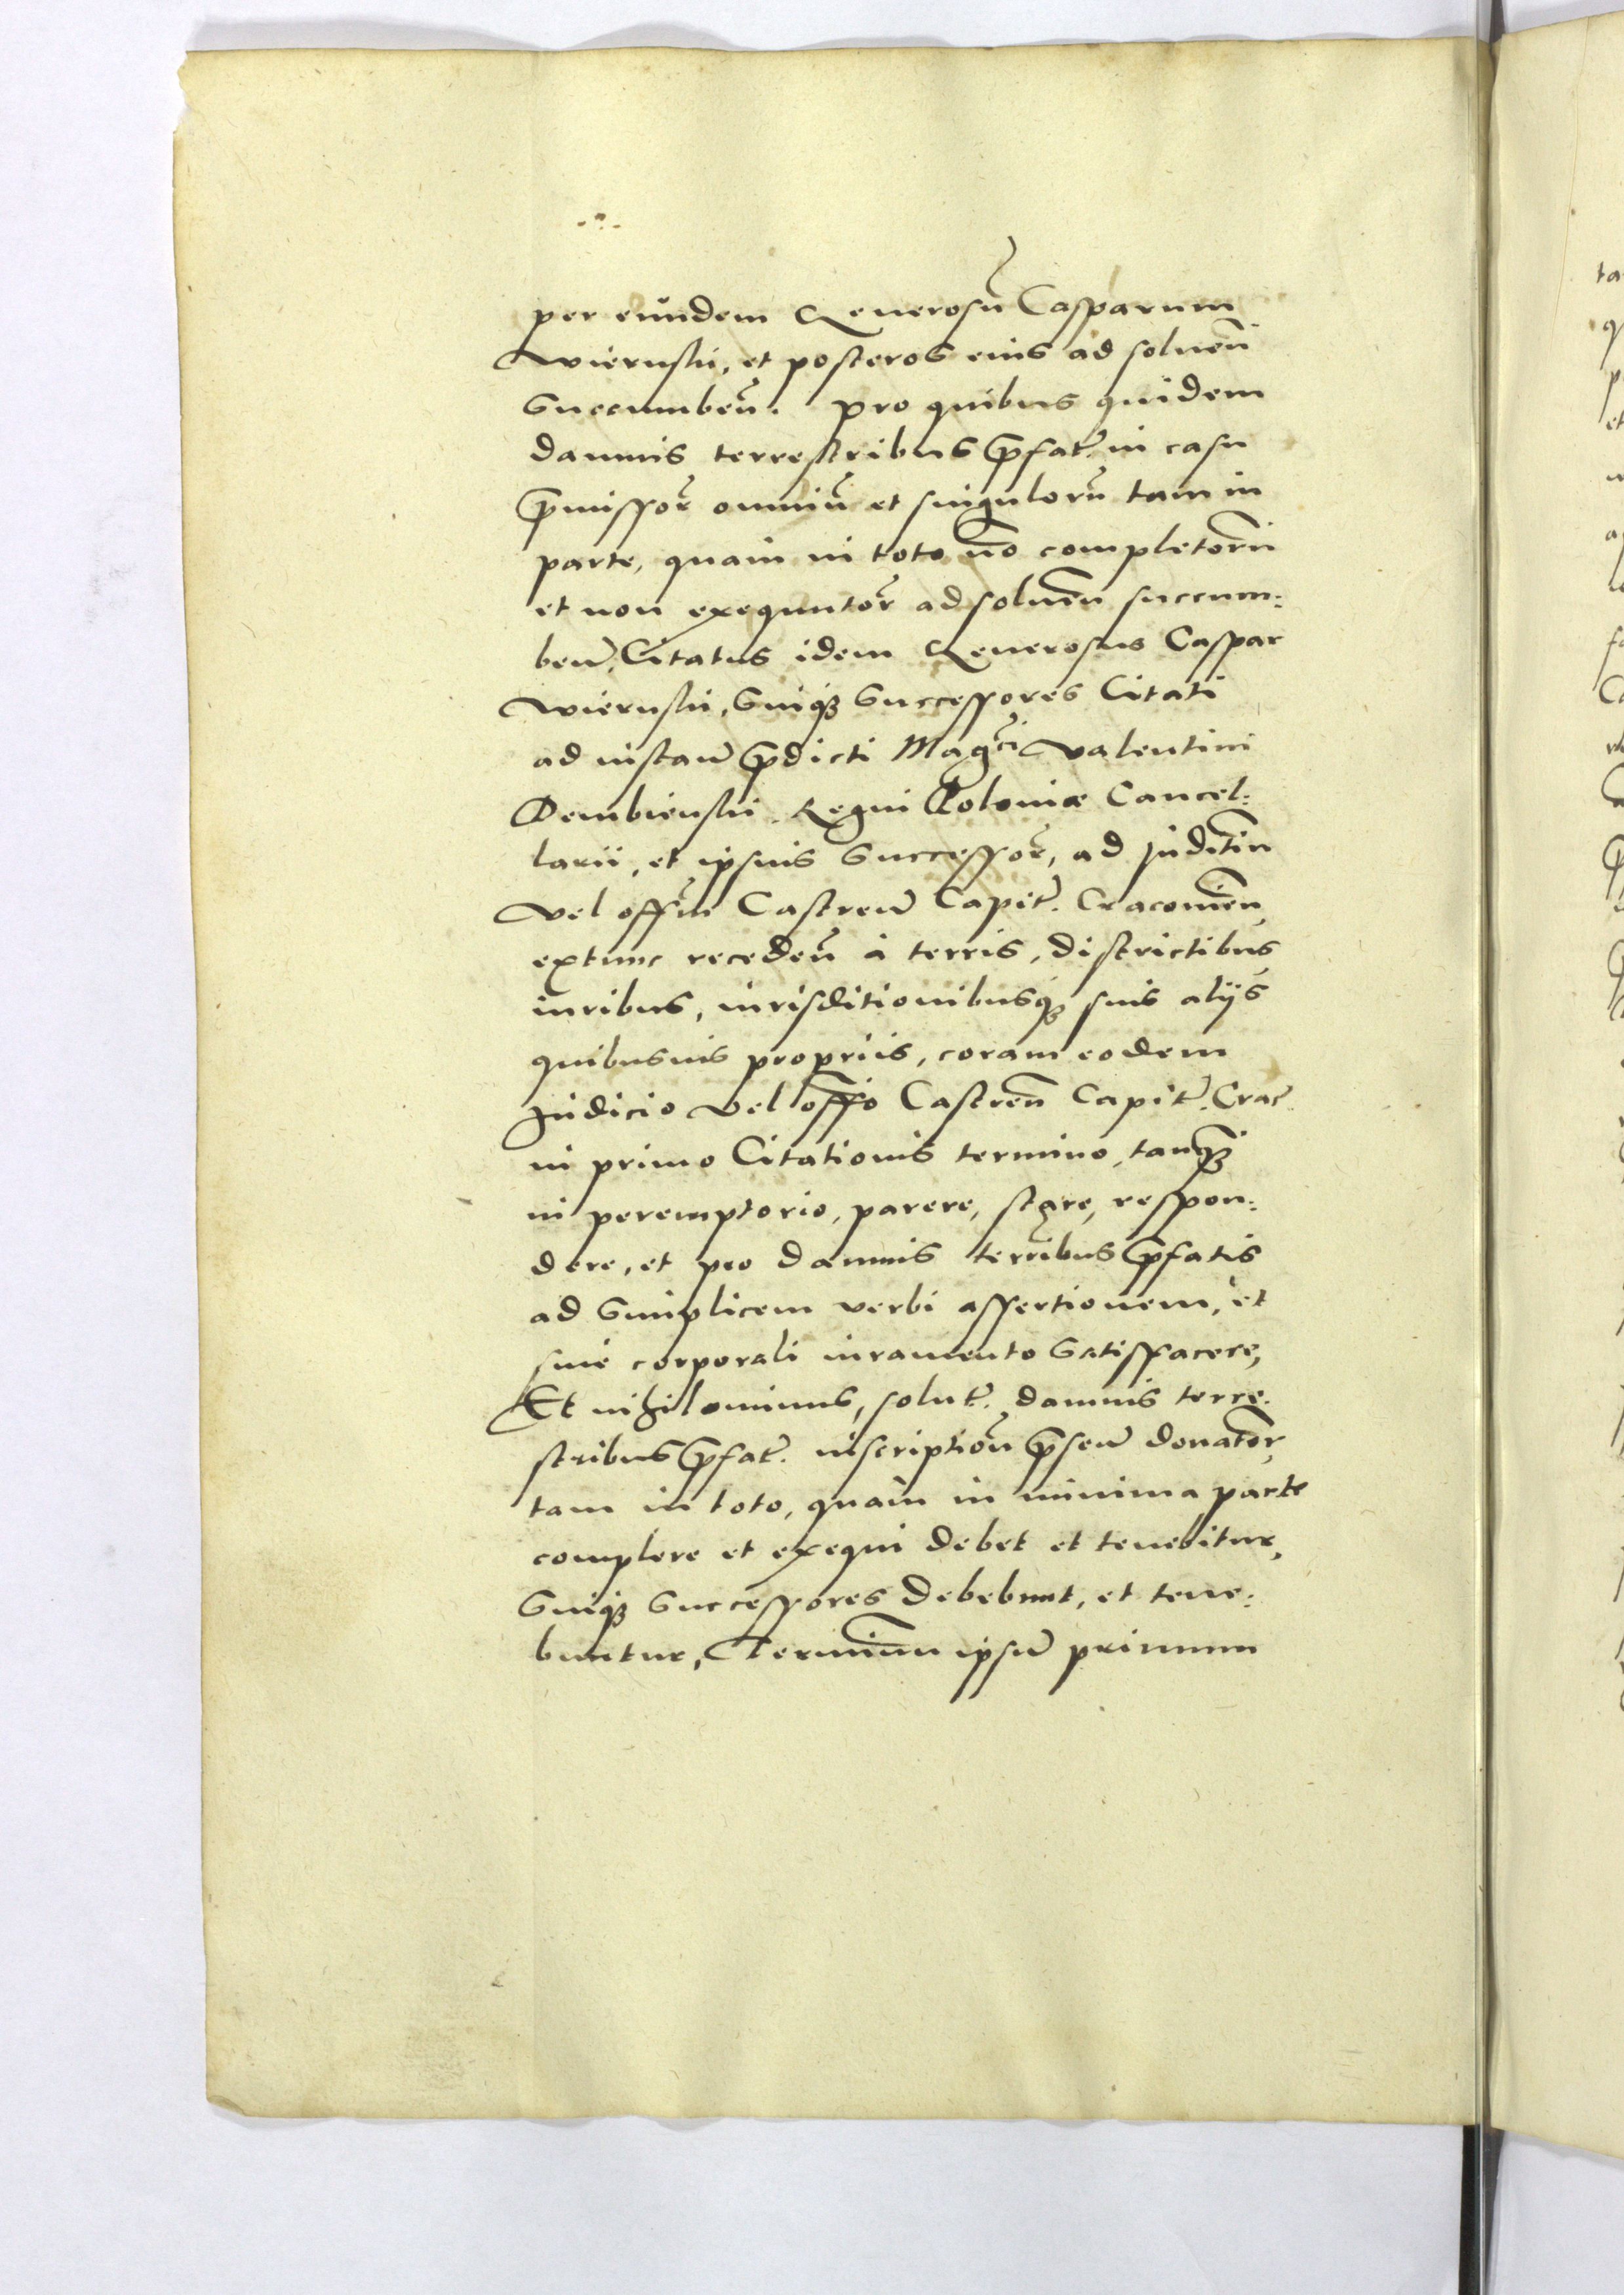 per eundem Generosū Casparum
Wiernski, et posteros eius ad soluen̄
Succumben̄. pro quibus quidem
damnis terrestribus p̄fat̄. in casu
p̄missor̄ omniū et singulorū tam in
parte, quam in toto nō completorū
et non exequutor̄ ad soluen̄ succum:
ben̄, Citatus idem Generosus Caspar
Wiernski, Suiqꝫ Successores Citati
ad instan̄ p̄dicti Mag.ci Valentini
Dembienski Regni Poloniæ Cancel:
larii, et ipsius Successor̄, ad Juditiū
vel offm̄ Castren̄ Capit̄. Cracouien̄
extunc receden̄ à terris, districtibus
iuribus, iurisditionibusqꝫ suis alijs
quibusuis propriis, coram eodem
Judicio vel offō Castren̄ Capit̄. Crac̄
in primo Citationis termino, tanqꝫ
in peremptorio, parere, stare, respon:
dere, et pro damnis terribus p̄fatis
ad Simplicem verbi assertionem, et
sine corporali iuramento Satisfacere,
Et nihilominus, solut̄. damnis terre:
stribus p̄fat̄. inscription̄ p̄sen̄ donator̄,
tam in toto, quam in minima parte
complere et exequi debet et tenebitur,
Suiqꝫ Successores debebunt, et tene:
buntur, Terminū ipsū primum